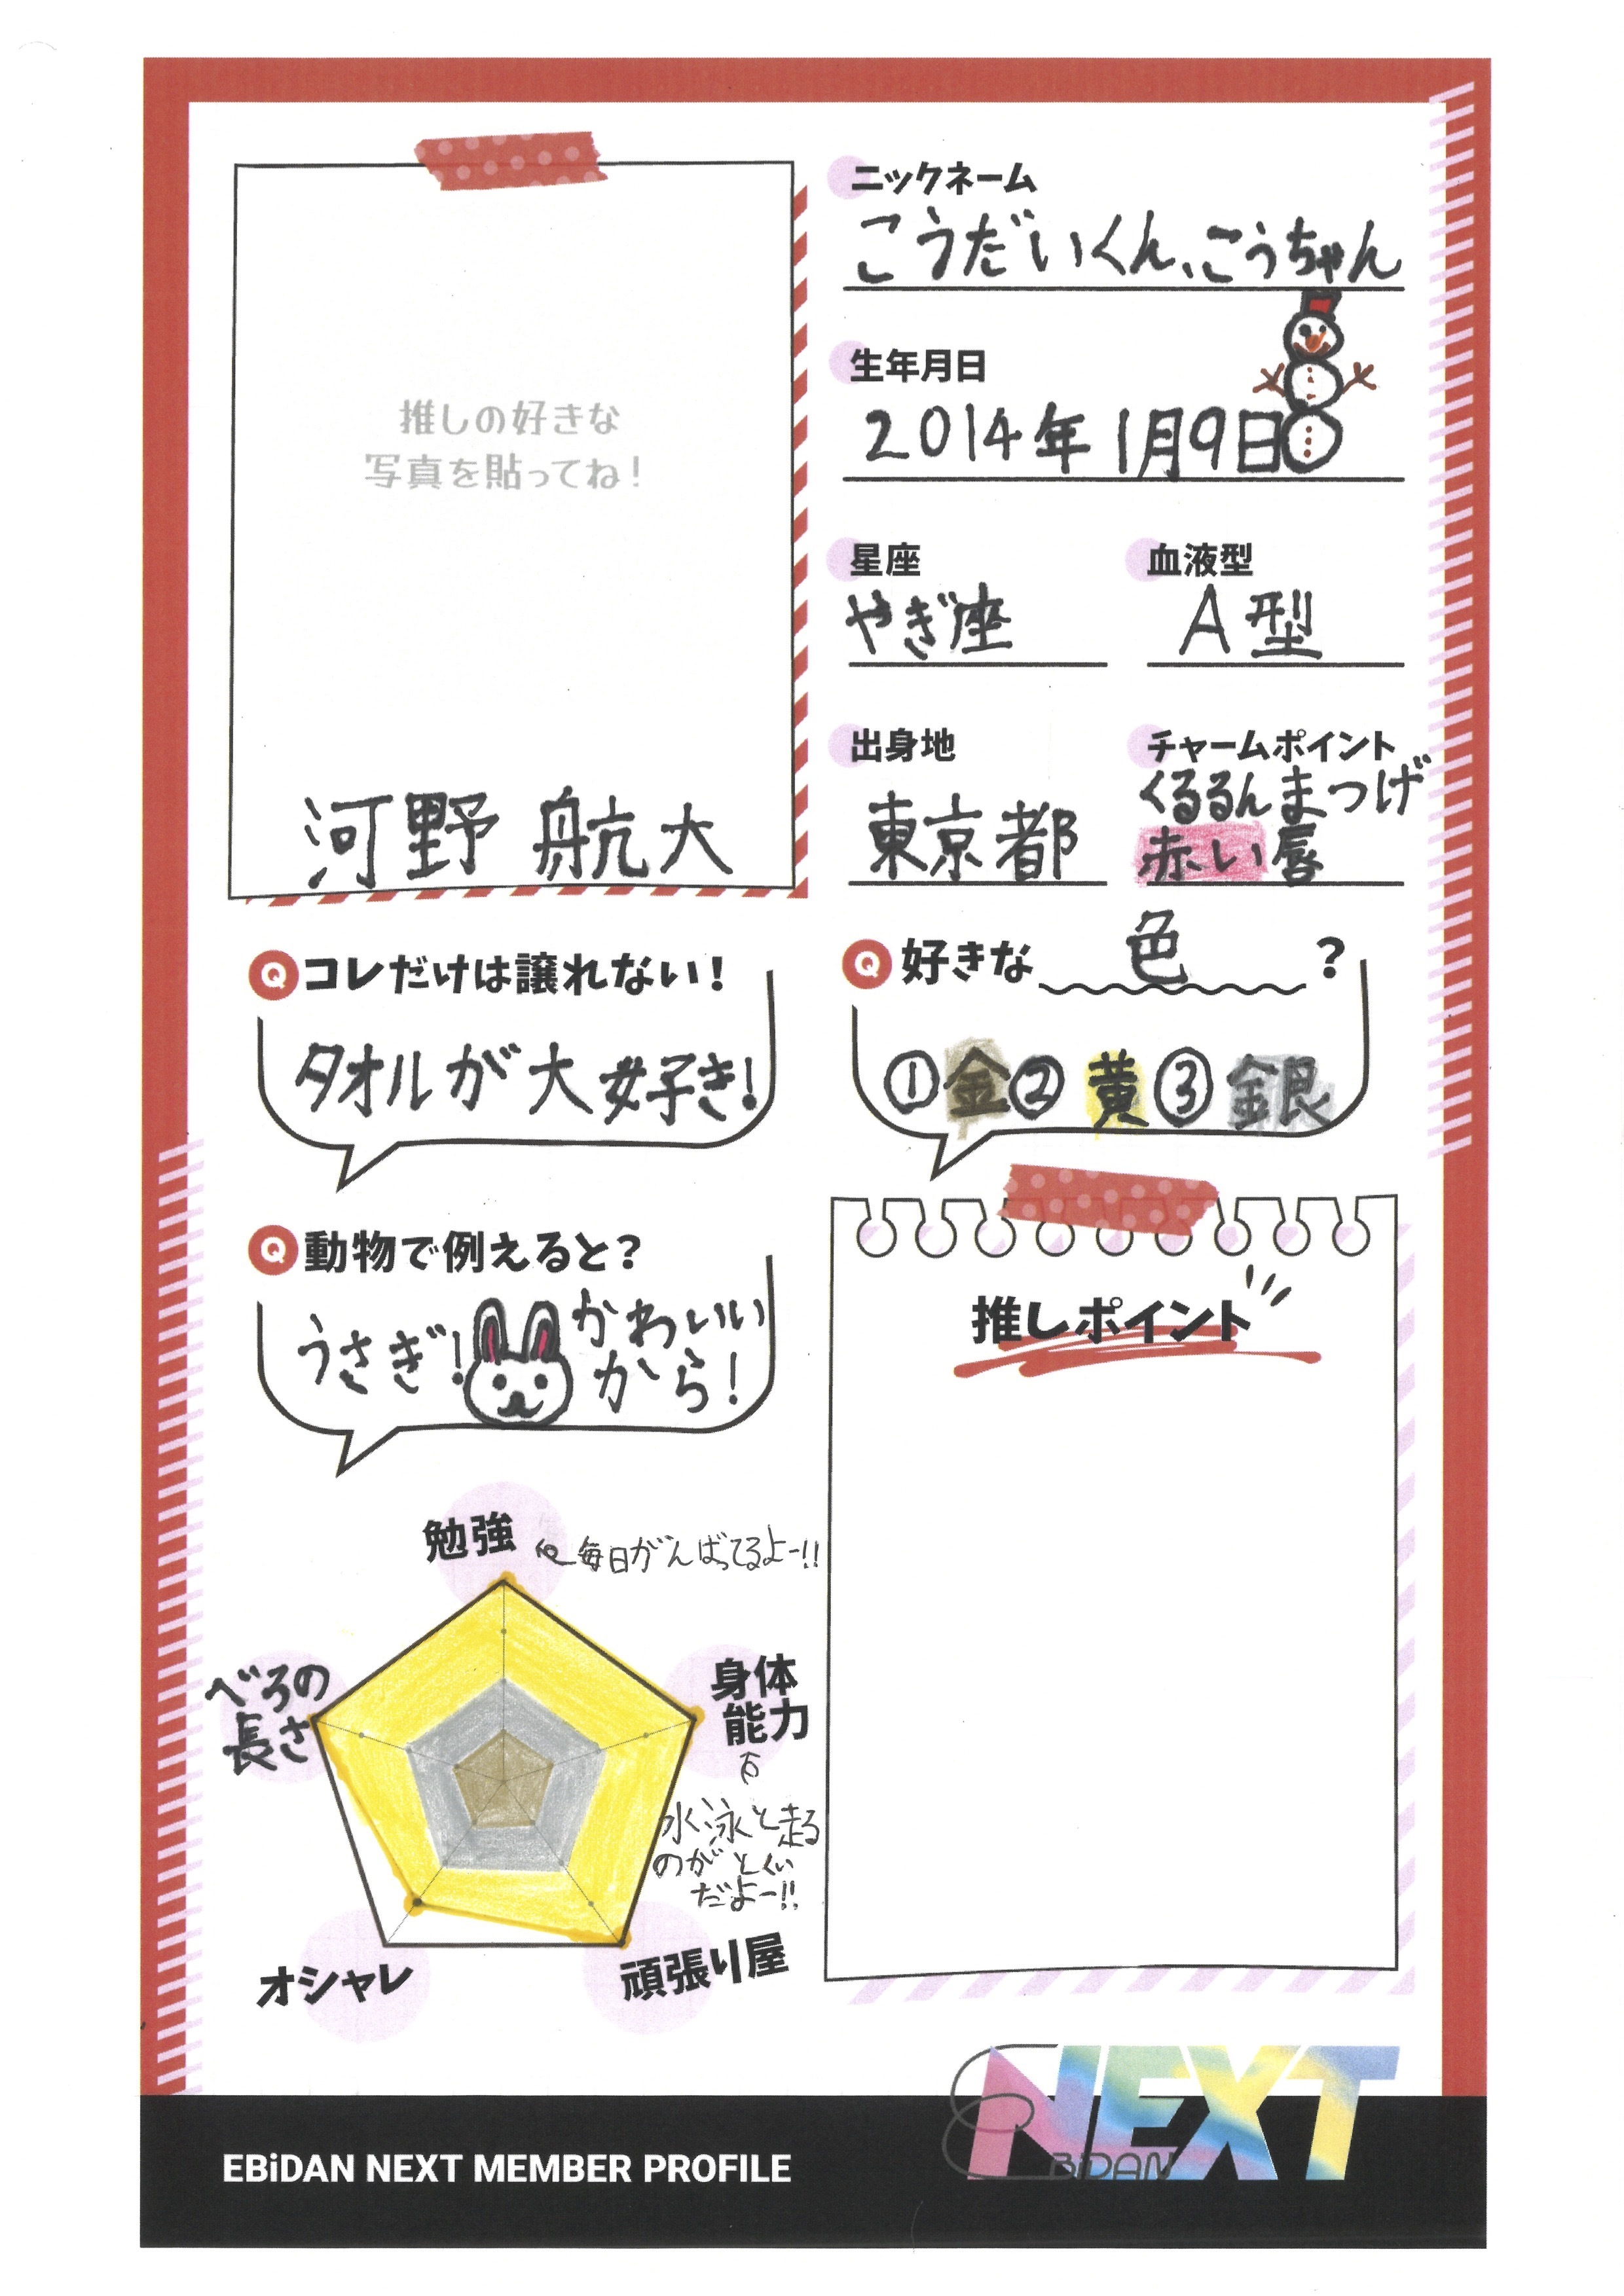 ニックネーム
こうだいくん、こうちゃん
生年月日
2014年1月9日
推しの好きな
写真を貼ってね！
星座
やぎ座
血液型
A型
出身地
東京都
チャームポイント
くるるんまつげ
赤い唇
河野 航大
Q コレだけは譲れない！
タオルが大好き！
Q 好きな 色 ？
①金②黄③銀
Q 動物で例えると？
うさぎ！
かわいい
から！
推しポイント
勉強
毎日がんばってるよー!!
べろの
長さ
身体
能力
水泳と走る
のがとくい
だよー!!
オシャレ
頑張り屋
EBiDAN NEXT MEMBER PROFILE
NEXT
EBiDAN